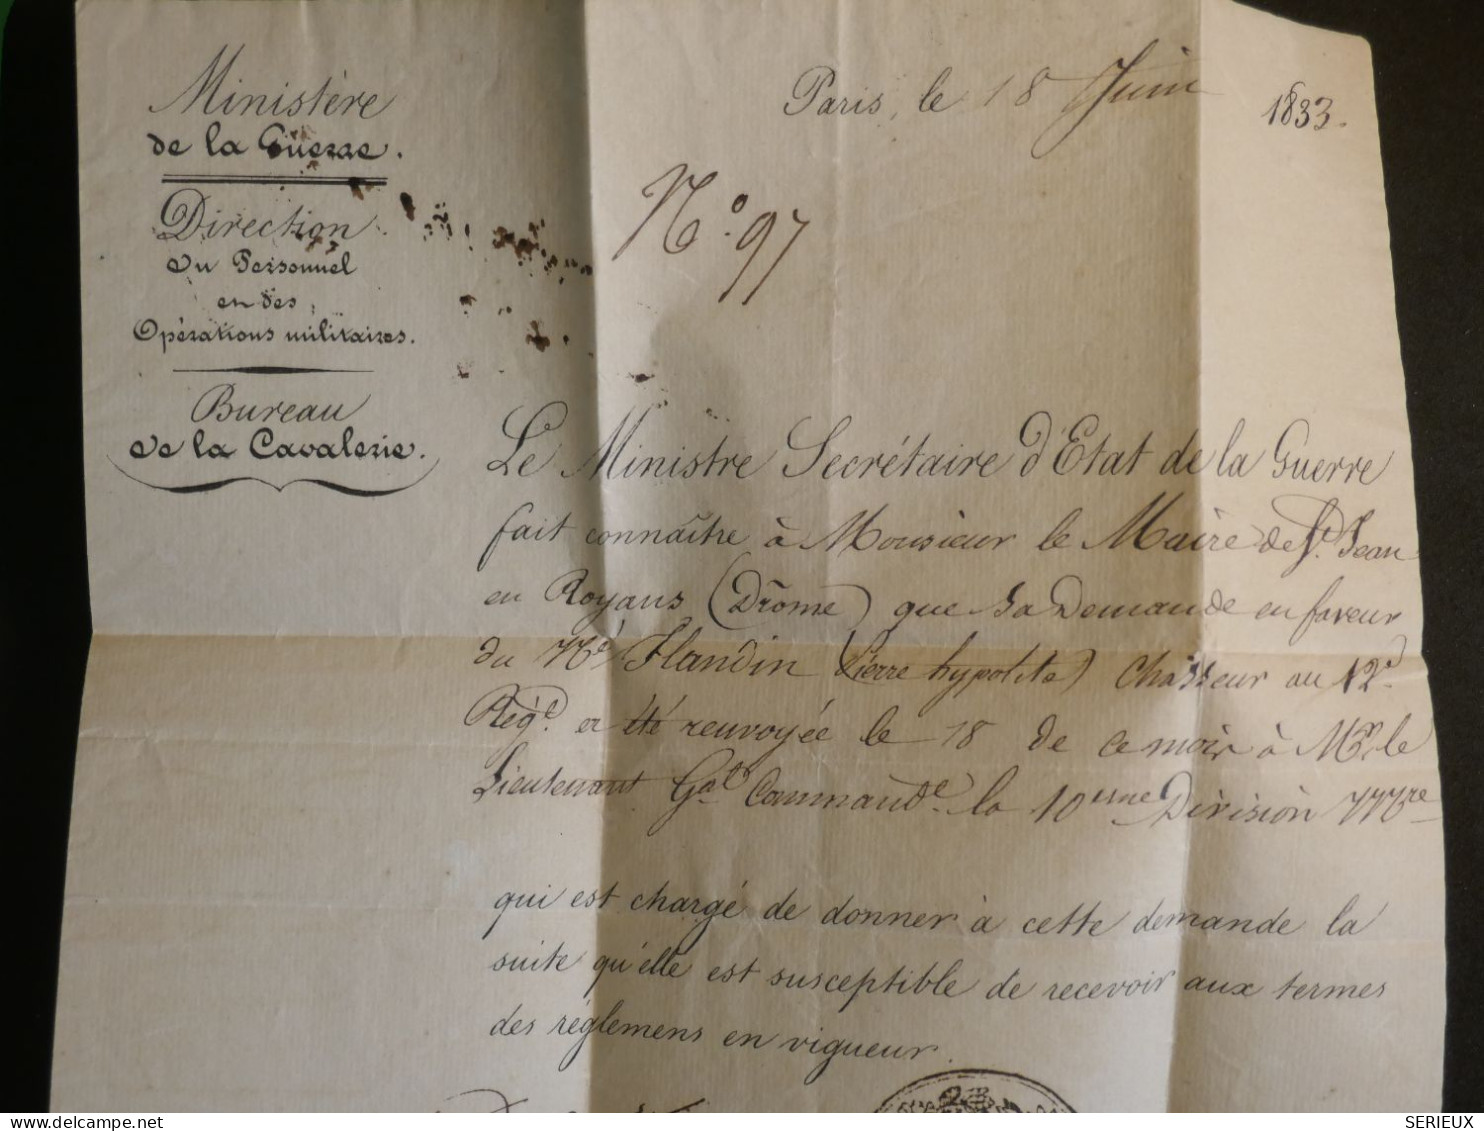 Ministère
de la Guerre.
Direction
du Personnel
et des
Opérations militaires.
Bureau
de la Cavalerie.
Paris, le 18 Juin 1833.
N.º 97
Le Ministre Secrétaire d'Etat de la Guerre
fait connaître à Monsieur le Maire de St. Jean
en Royans (Drôme) que sa demande en faveur
du Né Flandin (Pierre hypolite) Chasseur au 12e
Régt. a été renvoyée le 18 de ce mois à Mr. le
Lieutenant Gal Commandt. la 10eme Division Mre
qui est chargé de donner à cette demande la
suite qu'elle est susceptible de recevoir aux termes
des réglemens en vigueur.
SERIEUX